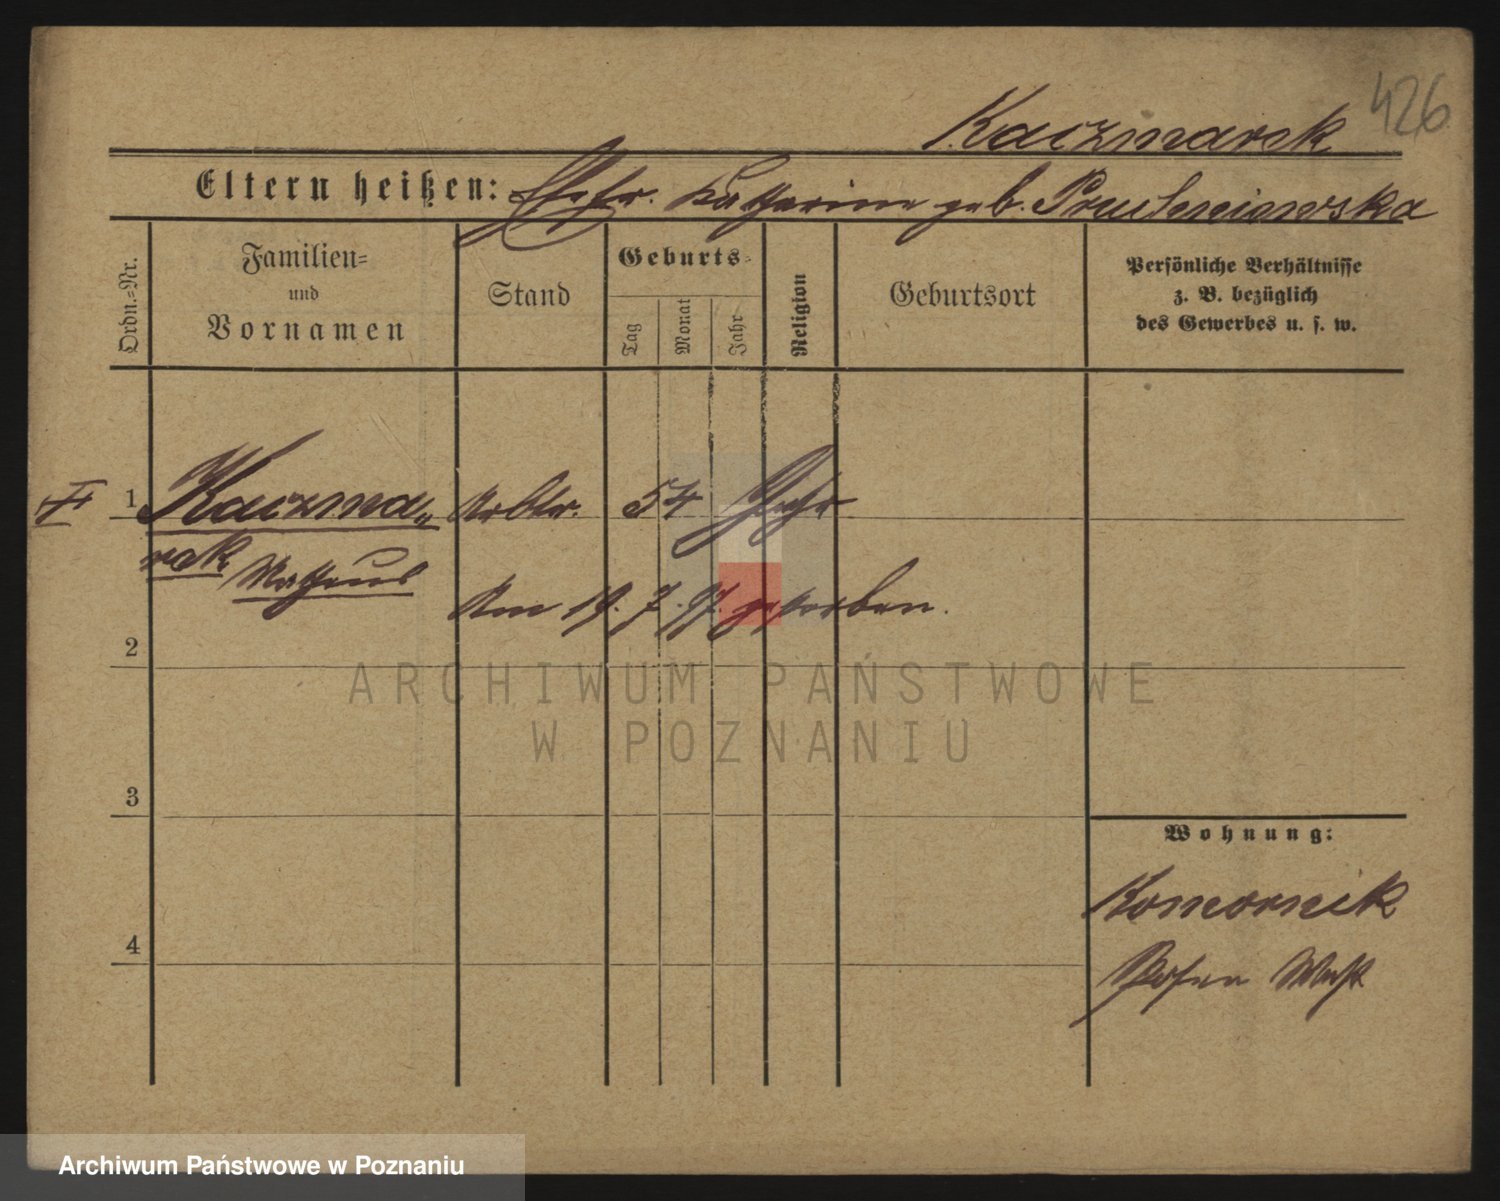 426
Kaczmarek
Eltern heißen: Ehefr. Katharine geb. Pruchniewska
Ordn.=Nr.
Familien=
und
Vornamen
Stand
Geburts=
Tag
Monat
Jahr
Religion
Geburtsort
Persönliche Verhältnisse
z. B. bezüglich
des Gewerbes u. s. w.
1 Kaczma= Arbtr. 54 Jahr
rek Matheus
Am 19. 7. 97. gestorben.
2
ARCHIWUM PAŃSTWOWE
W POZNANIU
3
Wohnung:
Komornik
4
Posen West
Archiwum Państwowe w Poznaniu